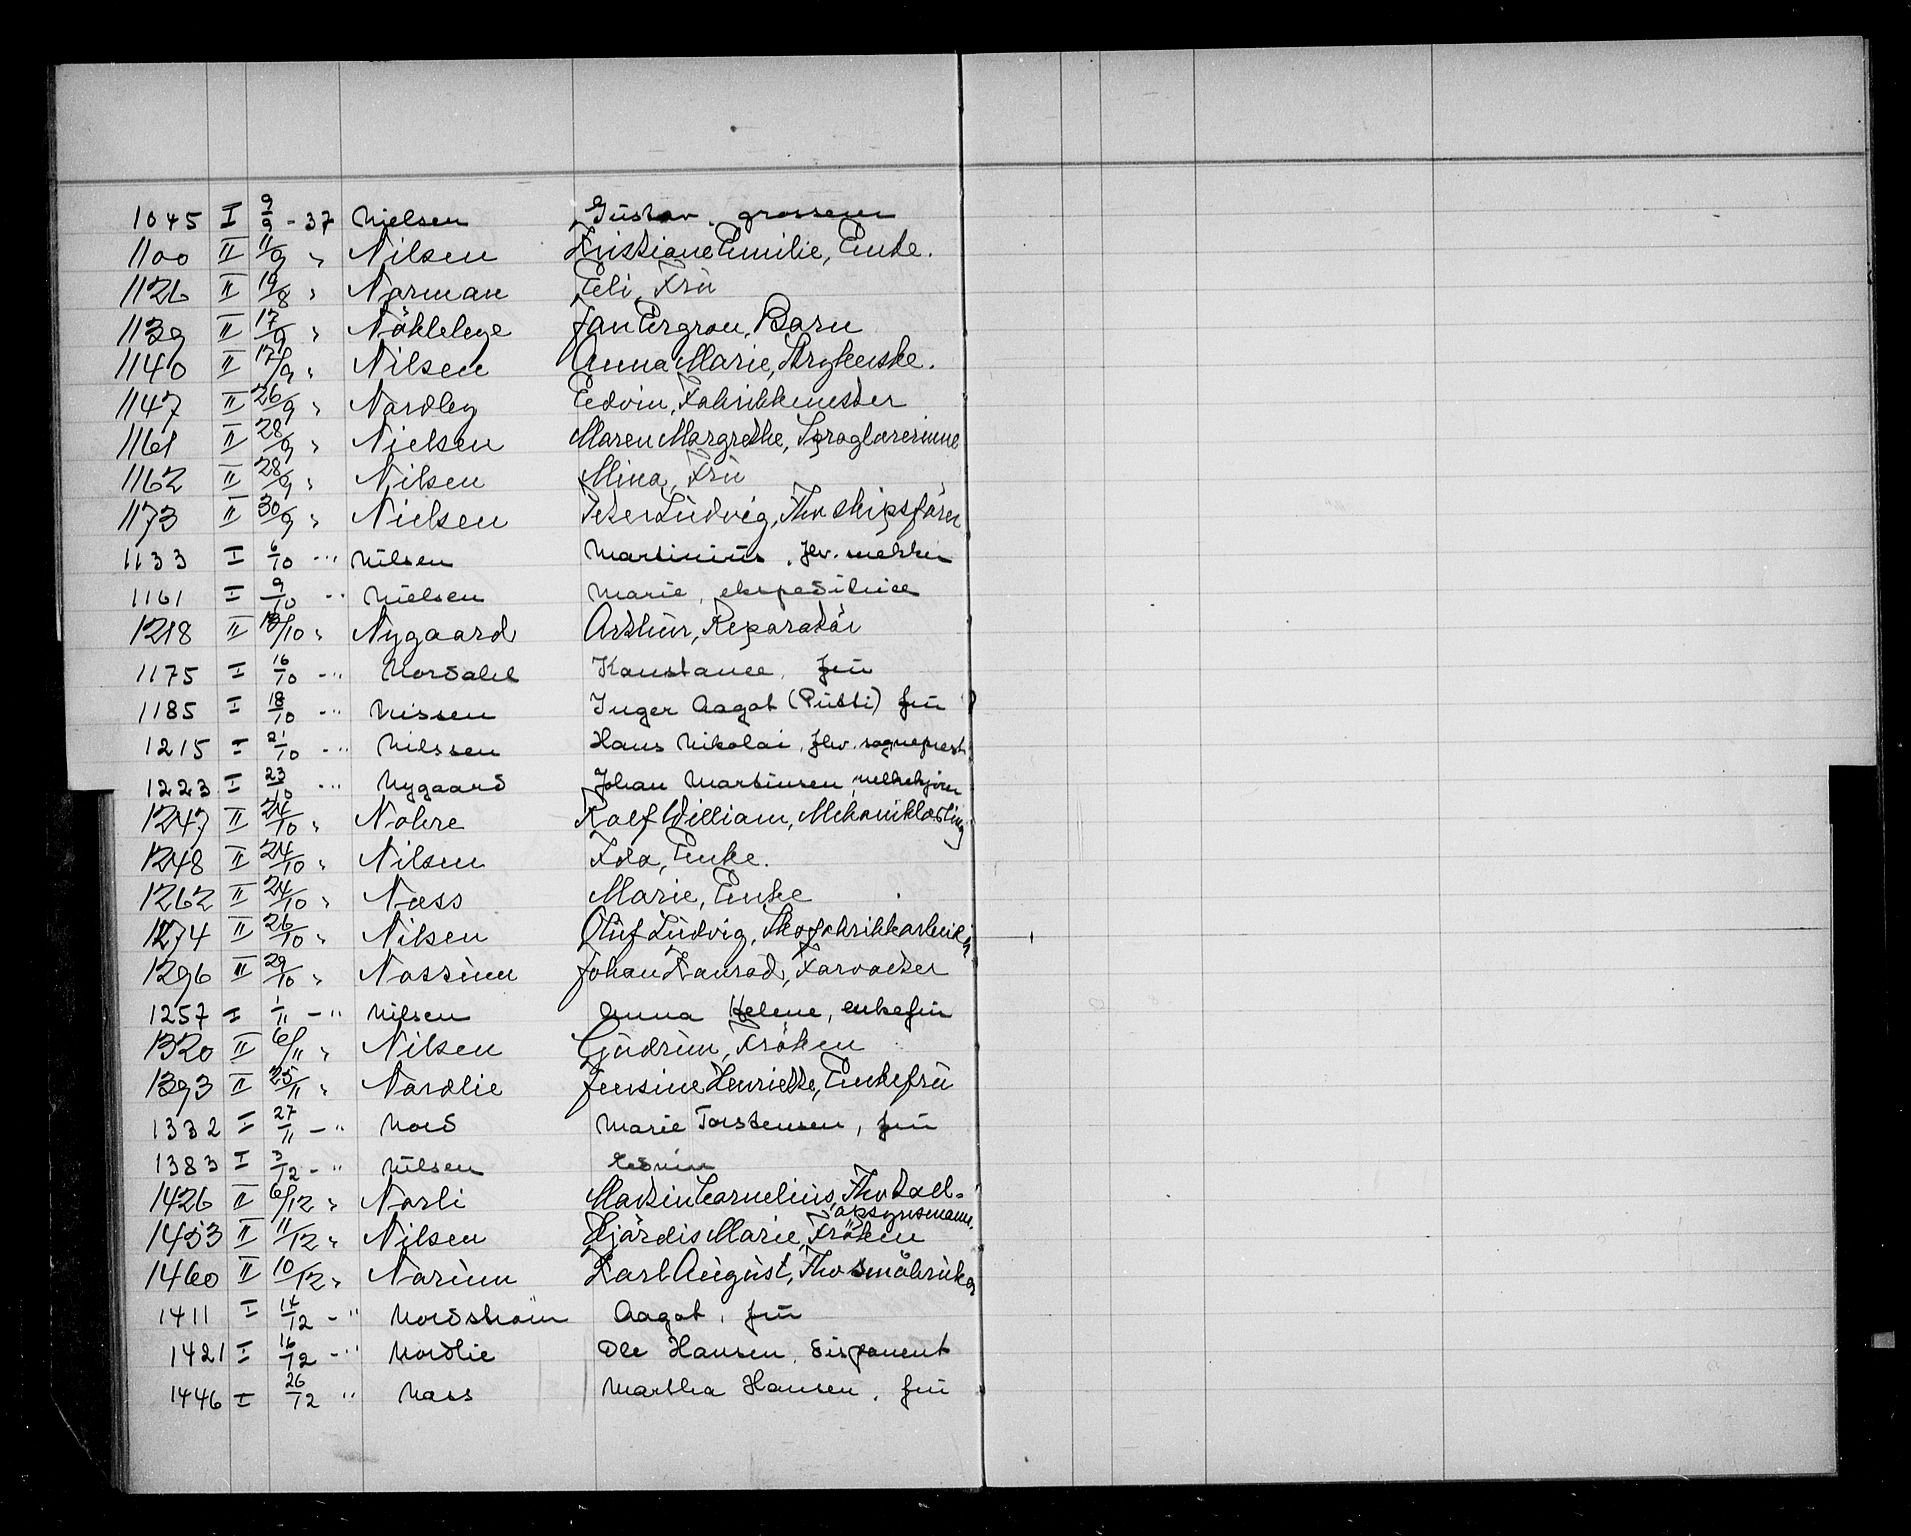 1045 I 9/9 - 37 Nielsen Gustav, grosserer
1100 II 11/9 " Nilsen Kristiane Emilie, Enke.
1126 II 19/8 " Norman Eli, Frü
1139 II 17/9 " Nökleleye Jan Ergron, Barn
1140 II 17/9 " Nilsen Anna Marie, Strykerske.
1147 II 26/9 " Nordley Edvin, Fabrikkmester
1161 II 28/9 " Nielsen Maren Margrethe, Sproglærerinne
1162 II 28/9 " Nilsen Mina, Frü
1173 II 30/9 " Nielsen Peter Lüdvig, Fhv skipsförer
1133 I 6/10 - " Nilsen Martinius, fhv. mekler
1161 I 9/10 - " Nielsen Marie, ekspeditrice
1218 II 10/10 " Nygaard Arthür, Reparatör
1175 I 16/10 - " Nordahl Konstance, frü
1185 I 18/10 - " Nissen Inger Aagot (Pütti) frü
1215 I 21/10 - " Nilssen Hans Nikolai, fhv. sogneprest
1223 I 23/10 - " Nygaard Johan Martinsen, melkekjörer
1247 II 24/10 " Nohre Rolf William, Mekaniklærling
1248 II 24/10 " Nilsen Ida, Enke.
1262 II 24/10 " Næss Marie, Enke
1274 II 26/10 " Nilsen Olüf Lüdvig, Skofabrikkarbeider
1296 II 29/10 " Nossüm Johan Konrad, Farvaeter
1257 I 1/11 - " Nilsen Anna Helene, enkefrü
1320 II 6/11 " Nilsen Güdrün, Fröken
1393 II 25/11 " Nordlie Jensine Henriette, Enkefrü
1332 I 27/11 - " Nord Marie Torstensen, frü
1383 I 3/12 - " Nilsen Edvin
1426 II 6/12 " Norli Martin Cornelius, Fhv toll-
opsynsmann.
1453 II 11/12 " Nilsen Hjördis Marie, Fröken
1460 II 10/12 " Norüm Karl Aügüst, Fhv småbrüker
1411 I 14/12 - " Nordström Aagot, frü
1421 I 16/12 - " Nordlie Ole Hansen, disponent
1446 I 26/12 " Næss Martha Hansen, frü